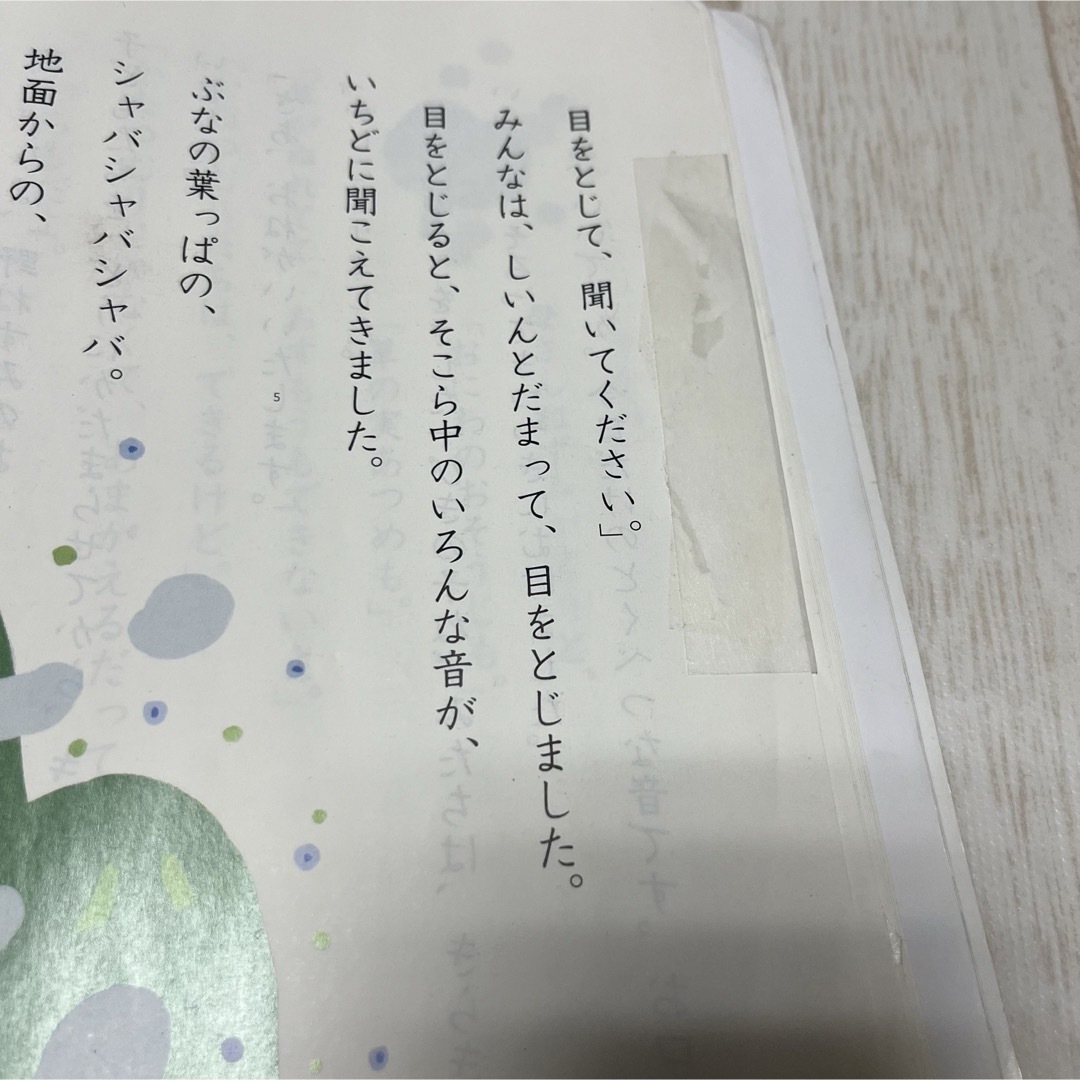 目をとじて、聞いてください。」
みんなは、しいんとだまって、目をとじました。
目をとじると、そこら中のいろんな音が、
いちどに聞こえてきました。
5
ぶなの葉っぱの、
シャバシャバシャバ。
地面からの、